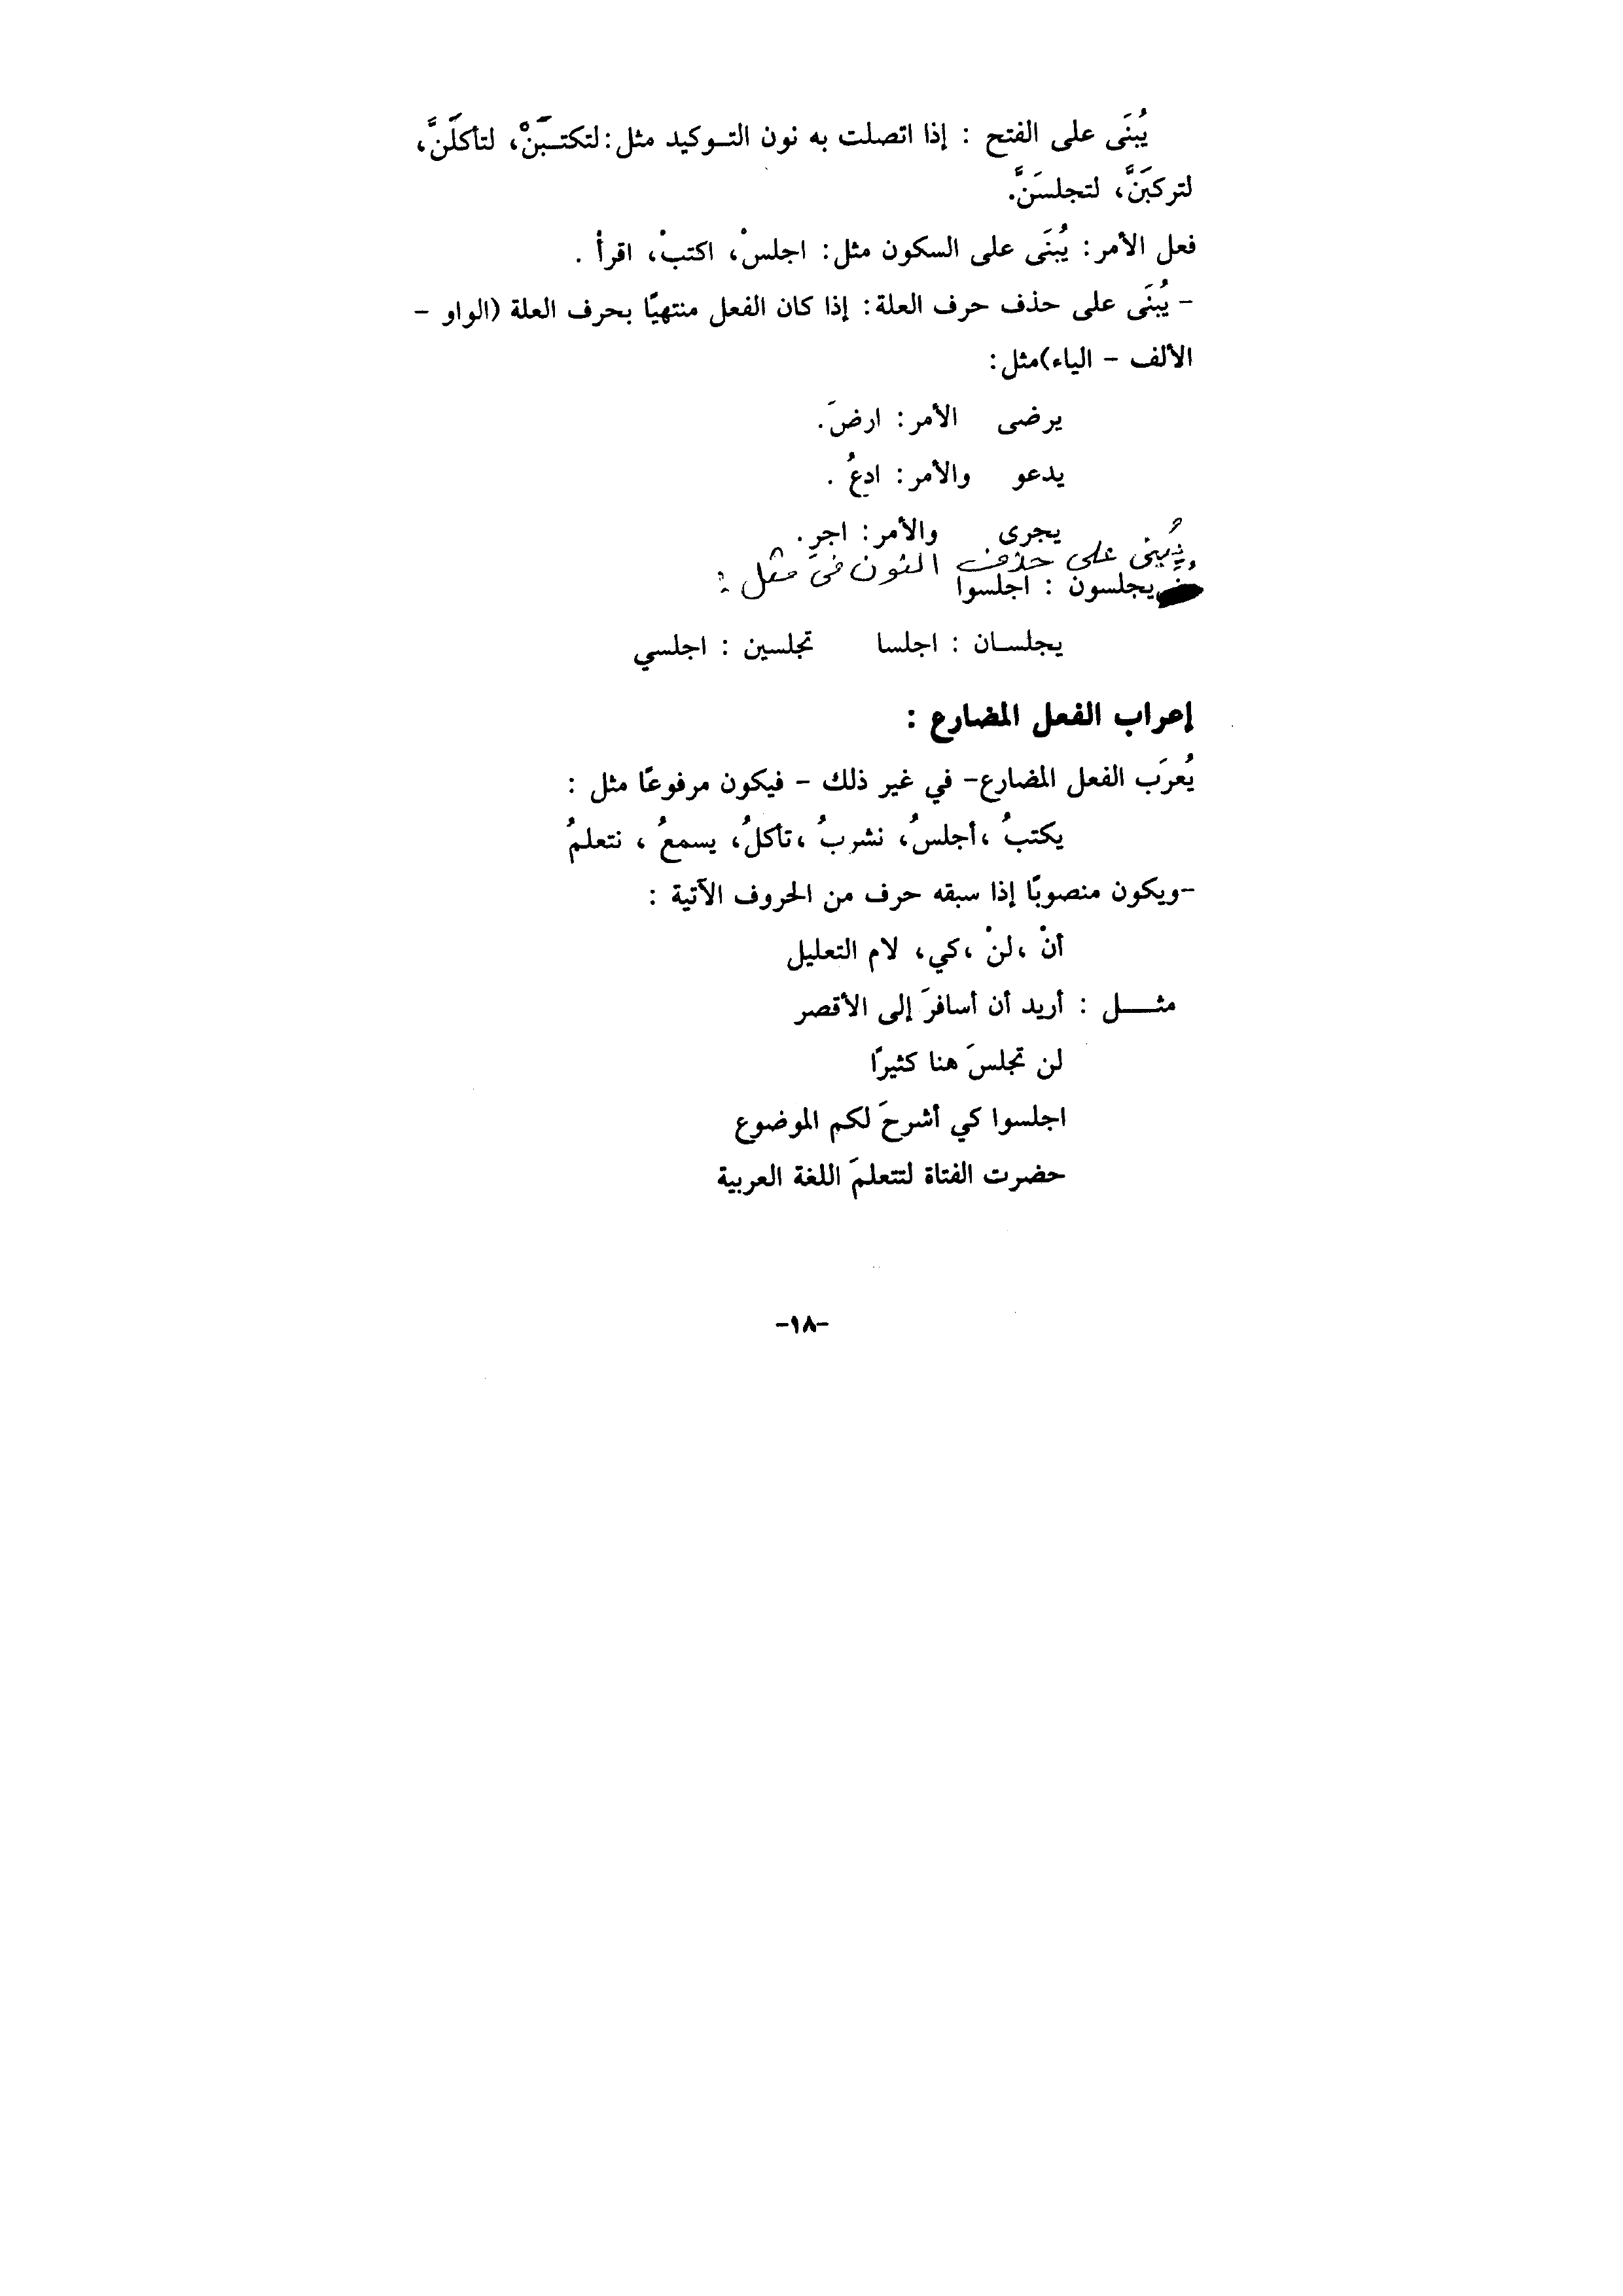 يُبنَى على الفتح : إذا اتصلت به نون التـوكيد مثل: لتكتـبَنْ، لتأكلَنَّ،
لتركبَنَّ، لتجلسَنَّ.
فعل الأمر: يُبنَى على السكون مثل: اجلسْ، اكتبْ، اقرأْ .
- يُبنَى على حذف حرف العلة: إذا كان الفعل منتهيًا بحرف العلة (الواو -
الألف - الياء)مثل:
يرضى الأمر: ارضَ.
يدعو والأمر: ادعُ .
يجرى والأمر: اجرِ.
ويُبنى على حذف النون فى مثل :
يجلسون : اجلسوا
يجلسـان : اجلسا تجلسين : اجلسي
إعراب الفعل المضارع :
يُعرَب الفعل المضارع- في غير ذلك - فيكون مرفوعًا مثل :
يكتبُ ،أجلسُ، نشربُ ،تأكلُ، يسمعُ ، نتعلمُ
-ويكون منصوبًا إذا سبقه حرف من الحروف الآتية :
أنْ ،لنْ ،كي، لام التعليل
مثـــل : أريد أن أسافرَ إلى الأقصر
لن تجلسَ هنا كثيرًا
اجلسوا كي أشرحَ لكم الموضوع
حضرت الفتاة لتتعلمَ اللغة العربية
-١٨-